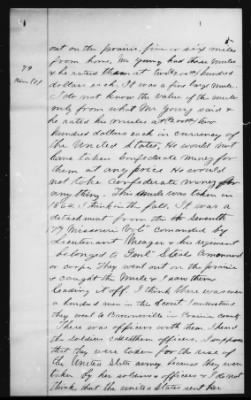 out on the prairie five or six miles
from home. Mr young had three mules
& he rated them at two hundred
dollars each. It was a free large mule.
I do not know the value of the mule
only from what Mr Young said &
he rated his mules at two
hundred dollars each in currency of
the United States, He would not
have taken Confederate money for
them at any price He would
not take Confederate money for
any thing. This mule was taken in
186 I think in the fall, It was a
detachment from the Seventh
"7 Missouri Vol" comanded by
Lieutenant Meager & his regiment
belonged to Genl Steels Command
or corps. They went out on the prairie
& caught the mule, I saw them
leading it off. I think there was over
a hundred men in the Scout I understand
they went to Brownsville in Prairie county
There was officers with them. I heard
the soldiers call them officers. I suppose
that they were taken for the use of
the United States army because they were
taken by her soldiers & officers & I do not
think that the united States sent her
79